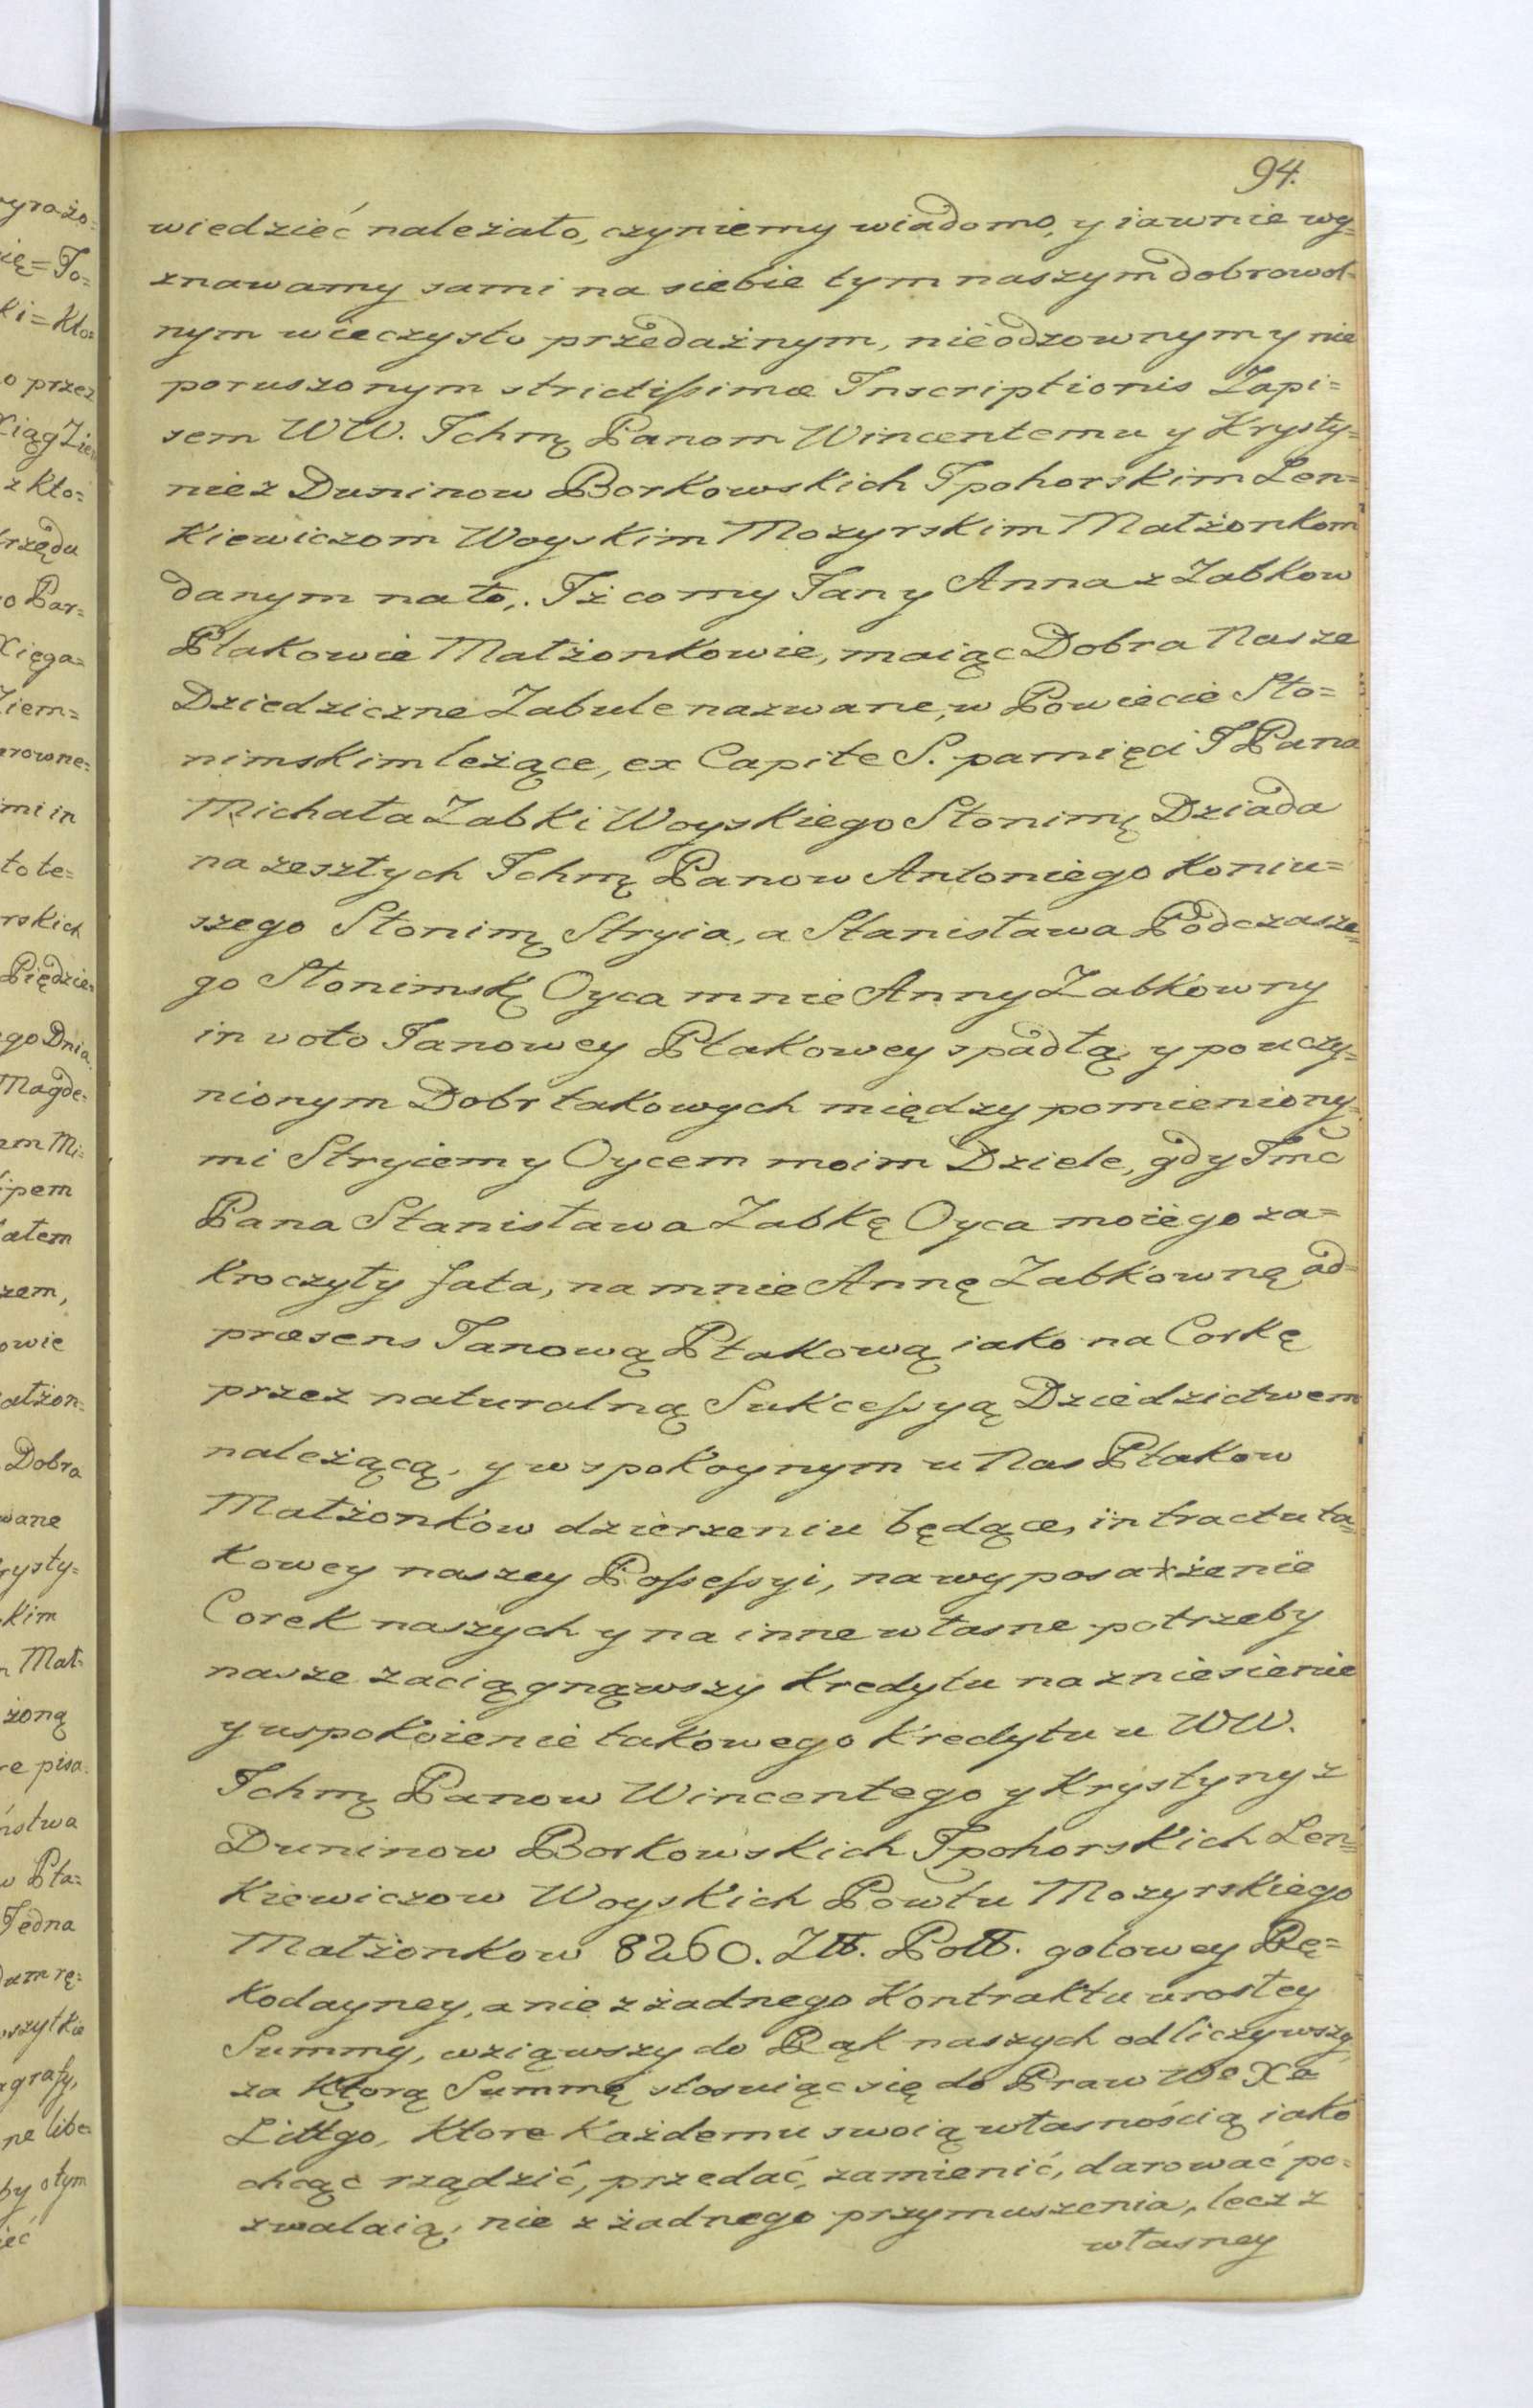 94.
wiedzieć należało, czyniemy wiadomo, y iawnie wy=
znawamy sami na siebie tym naszym dobrowol=
nym wieczysto przedażnym, nieodzownym y nie
poruszonym strictissimæ Inscriptionis Zapi=
sem WW. Ichmę Panom Wincentemu y Krysty=
nie z Duninow Borkowskich Ipohorskim Len=
kiewiczom Woyskim Mozyrskim Małżonkom
danym na to, Iż co my Jan y Anna z Zabkow
Ptakowie Małżonkowie, maiąc Dobra Nasze
Dziedziczne Zabule nazwane, w Powiecie Sło=
nimskim leżące, ex Capite S. pamięci J Pana
Michała Zabki Woyskiego Słonimę Dziada
na zeszłych Ichmę Panow Antoniego Koniu=
szego Słonimę Stryia, a Stanisława Podczasze=
go Słonimskę Oyca mnie Anny Zabkowny
in voto Janowey Ptakowey spadłą, y po uczy=
nionym Dobr takowych między pomieniony=
mi Stryiem y Oycem moim Dziele, gdy Jmć
Pana Stanisława Zabkę Oyca moiego za=
kroczyły fata, na mnie Annę Zabkownę ad=
præsens Janową Ptakową iako na Corkę
przez naturalną Sukcessyą Dziedzictwem
należącą, y w spokoynym u Nas Ptakow
Małżonkow dzierzeniu będące, in tractu ta=
kowey naszey Possessyi, na wyposażenie
Corek naszych y na inne własne potrzeby
nasze zaciągnąwszy Kredytu na zniesienie
y uspokoienie takowego Kredytu u WW.
Ichmę Panow Wincentego y Krystyny z
Duninow Borkowskich Ipohorskich Len=
kiewiczow Woyskich Powtu Mozyrskiego
Małżonkow 8260. Złł. Poll. gotowey Rę=
kodayney, a nie z żadnego Kontraktu urosłey
Summy, wziąwszy do Rąk naszych odliczywszy,
za Ktorą Summę stosuiąc się do Praw Wo Xa
Littgo, Ktore Każdemu swoią własnością iako
chcąc rządzić, przedać, zamienić, darować po=
zwalaią, nie z żadnego przymuszenia, lecz z
własney